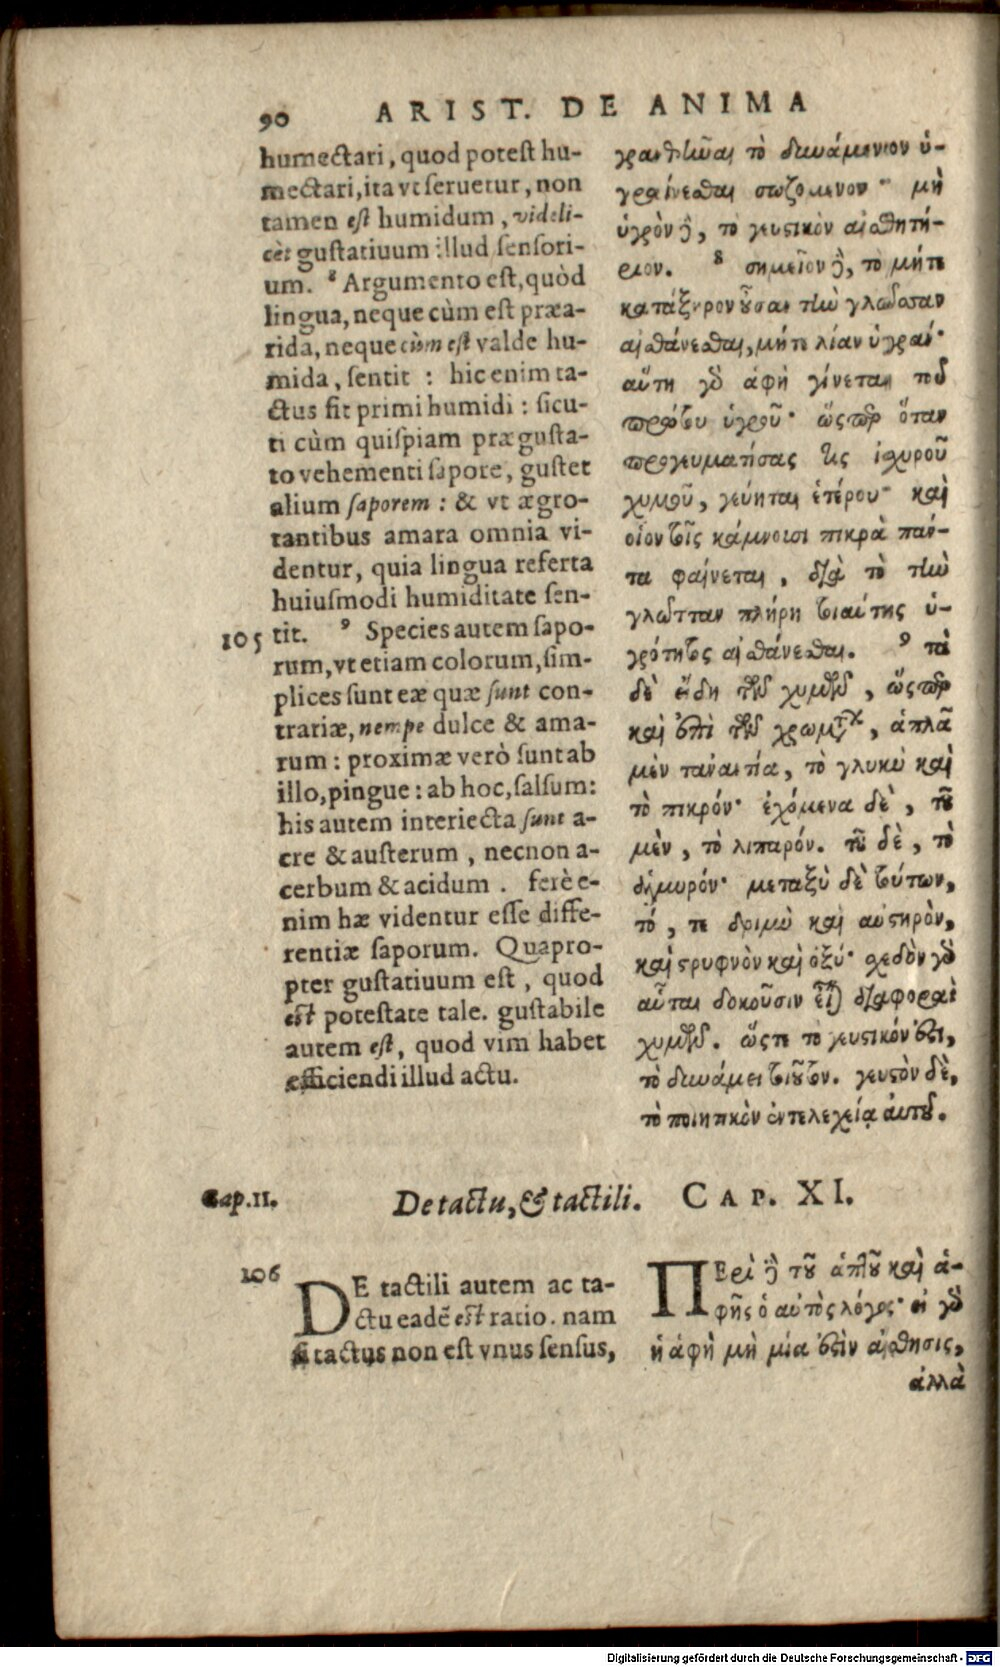 90 ARIST. DE ANIMA
humectari, quod potest hu-
mectari, ita vt seruetur, non
tamen est humidum, videli-
cèt gustatiuum illud sensori-
um. 8 Argumento est, quòd
lingua, neque cùm est præa-
rida, neque cùm est valde hu-
mida, sentit : hic enim ta-
ctus fit primi humidi : sicu-
ti cùm quispiam prægusta-
to vehementi sapore, gustet
alium saporem : & vt ægro-
tantibus amara omnia vi-
dentur, quia lingua referta
huiusmodi humiditate sen-
105 tit. 9 Species autem sapo-
rum, vt etiam colorum, sim-
plices sunt eæ quæ sunt con-
trariæ, nempe dulce & ama-
rum : proximæ verò sunt ab
illo, pingue : ab hoc, salsum:
his autem interiecta sunt a-
cre & austerum, necnon a-
cerbum & acidum. ferè e-
nim hæ videntur esse diffe-
rentiæ saporum. Quapro-
pter gustatiuum est, quod
est potestate tale. gustabile
autem est, quod vim habet
efficiendi illud actu.
γρανθῆναι τὸ δυνάμενον ὑ-
γραίνεσθαι σωζόμενον· μὴ
ὑγρὸν δὲ, τὸ γευστικὸν αἰσθητή-
ριον. 8 σημεῖον δὲ, τὸ μήτε
κατάξηρον οὖσαν τὴν γλῶσσαν
αἰσθάνεσθαι, μήτε λίαν ὑγράν·
αὕτη γὰρ ἁφὴ γίνεται τοῦ
πρώτου ὑγροῦ· ὥσπερ ὅταν
προγευματίσας τις ἰσχυροῦ
χυμοῦ, γεύηται ἑτέρου· καὶ
οἷον τοῖς κάμνουσι πικρὰ πάν-
τα φαίνεται, διὰ τὸ τὴν
γλῶτταν πλήρη τοιαύτης ὑ-
γρότητος αἰσθάνεσθαι. 9 τὰ
δὲ εἴδη τῶν χυμῶν, ὥσπερ
καὶ ἐπὶ τῶν χρωμάτων, ἁπλᾶ
μὲν τἀναντία, τὸ γλυκὺ καὶ
τὸ πικρόν· ἐχόμενα δὲ, τοῦ
μὲν, τὸ λιπαρόν. τοῦ δὲ, τὸ
ἁλμυρόν· μεταξὺ δὲ τούτων,
τό, τε δριμὺ καὶ αὐστηρὸν,
καὶ στρυφνὸν καὶ ὀξύ· σχεδὸν γὰρ
αὗται δοκοῦσιν εἶναι διαφοραὶ
χυμῶν. ὥστε τὸ γευστικόν ἐστι,
τὸ δυνάμει τοιοῦτον. γευστὸν δὲ,
τὸ ποιητικὸν ἐντελεχείᾳ αὐτοῦ.
Cap. 11. De tactu, & tactili. CAP. XI.
106
DE tactili autem ac ta-
ctu eadē est ratio. nam
si tactus non est vnus sensus,
ΠΕρὶ δὲ τοῦ ἁπτοῦ καὶ ἁ-
φῆς ὁ αὐτὸς λόγος· εἰ γὰρ
ἡ ἁφὴ μὴ μία ἐστὶν αἴσθησις,
ἀλλὰ
Digitalisierung gefördert durch die Deutsche Forschungsgemeinschaft - DFG